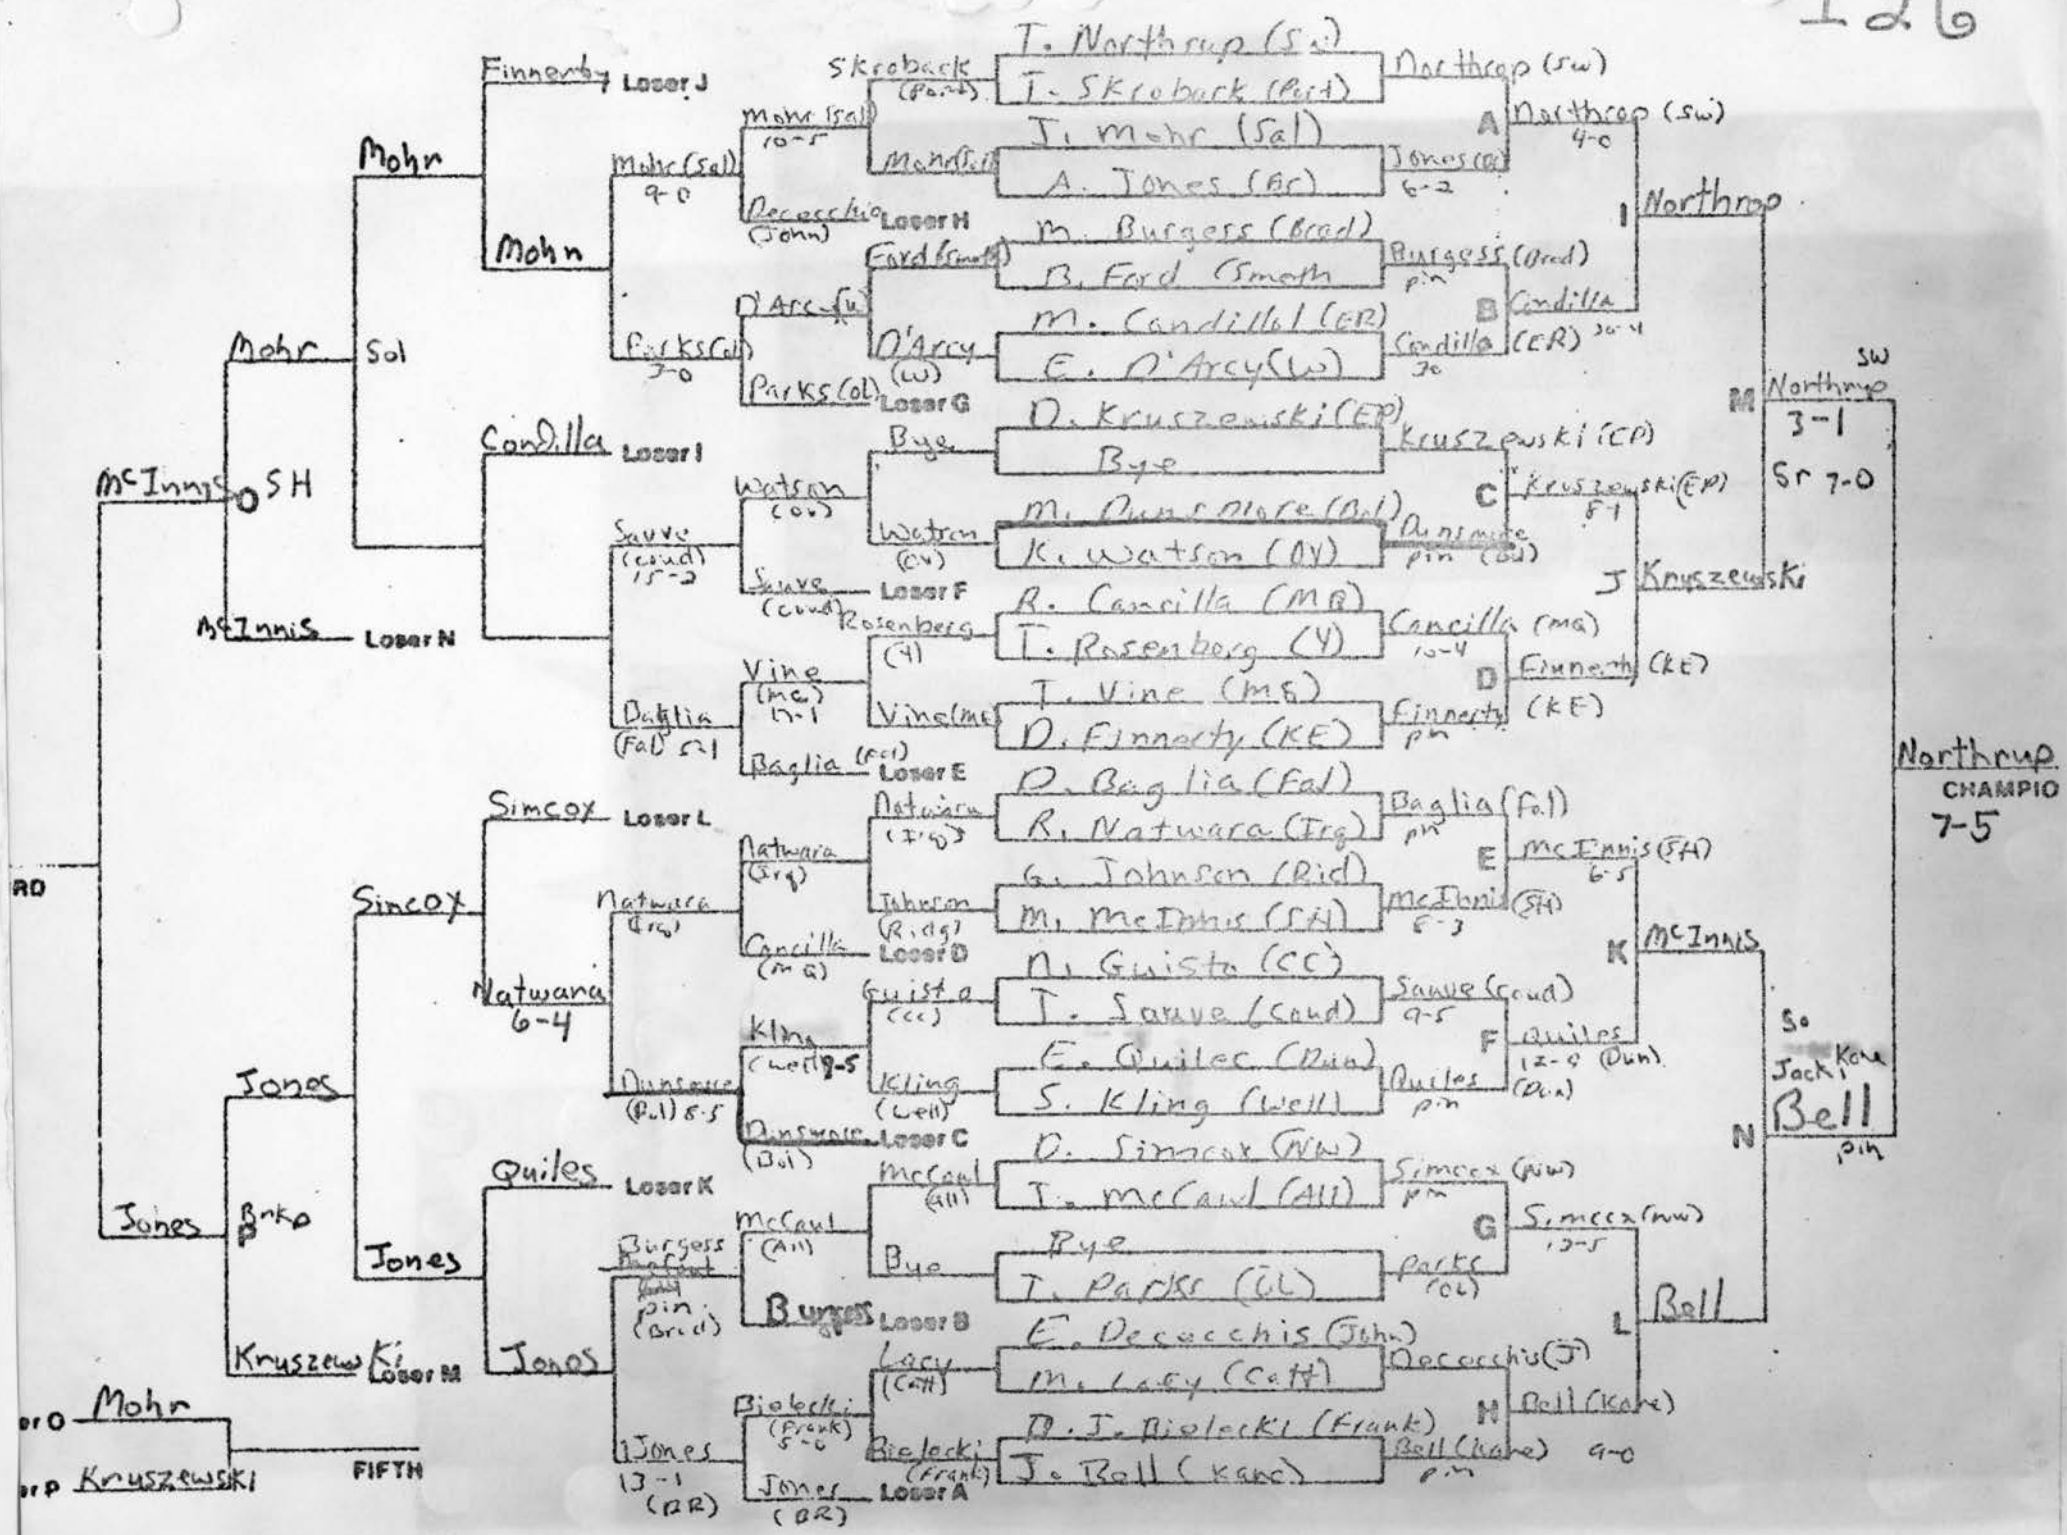 126
T. Northrup (Sw)
T. Skroback (Port)
J. Mohr (Sal)
A. Jones (Br)
M. Burgess (Brad)
B. Ford (Smeth
M. Candillal (ER)
E. D'Arcy (W)
D. Kruszewski (EP)
Bye
M. Dunsmore (Bol)
K. Watson (OV)
R. Cancilla (MQ)
T. Rosenberg (Y)
T. Vine (ME)
D. Finnerty (KE)
D. Baglia (Fal)
R. Natwara (Irq)
G. Johnson (Rid)
M. McInnis (SH)
N. Guisto (CC)
T. Sauve (Coud)
E. Quilec (Dun)
S. Kling (Well)
D. Simcox (NW)
T. McCawl (All)
Bye
T. Parks (OL)
E. Decocchis (John)
M. Lacy (Catt)
D.J. Bielecki (Frank)
J. Bell (Kane)
Northrop (SW)
Jones (Br)
6-2
Burgess (Brad)
pin
Condilla (ER)
Kruszewski (EP)
Dunsmore
pin
Cancilla (MQ)
10-4
Finnerty (KE)
pin
Baglia (Fal)
pin
McInnis (SH)
8-3
Sauve (Coud)
9-5
Quiles (Dun)
pin
Simcox (NW)
pin
Parks
(OL)
Decocchis (J)
Bell (Kane)
pin
A
Northrop (SW)
4-0
B
Condilla
C
Kruszewski (EP)
8-1
D
Finnerty (KE)
E
McInnis (SH)
6-5
F
Quiles
(Dun)
G
Simcox (NW)
H
Bell (Kane)
9-0
I
Northrop
J
Kruszewski
K
McInnis
L
Bell
M
SW
Northrup
3-1
Sr 7-0
N
So
Jack, Kane
Bell
pin
Northrup
CHAMPIO
7-5
Skroback
(Port)
Mohr (Sal)
Ford (Smeth)
D'Arcy
(W)
Bye
Watson
(OV)
Rosenberg
(Y)
Vine (ME)
Natwara
(Irq)
Johnson
(Ridg)
Guisto
(CC)
Kling
(Well)
McCaul
(All)
Bye
Lacy
(Catt)
Bielecki
(Frank)
Mohr (Sal)
10-5
Decocchio
(John)
Loser H
D'Arcy (W)
Parks (OL)
Loser G
Watson
(OV)
Sauve
(Coud)
Loser F
Vine
(ME)
17-1
Baglia (Fal)
Loser E
Natwara
(Irq)
Cancilla
(MQ)
Loser D
Kling
(Well) 9-5
Dunsmore
(Bol)
Loser C
McCaul
(All)
Burgess
Loser B
Bielecki
(Frank)
5-0
Jones
(BR)
Loser A
Mohr (Sal)
9-0
Parks (OL)
3-0
Sauve
(Coud)
15-2
Baglia
(Fal)
Natwara
(Irq)
Dunsmore
(Bol) 8-5
Burgess
pin
(Brad)
Jones
13-1
(BR)
Finnerty
Loser J
Mohn
Condilla
Loser I
Simcox
Loser L
Natwara
6-4
Quiles
Loser K
Jones
Mohr
Sal
Sincox
Jones
Mohr
McInnis
Loser N
Jones
Kruszewski
Loser M
McInnis
O SH
Jones
P
RD
er O
Mohr
er P
Kruszewski
FIFTH